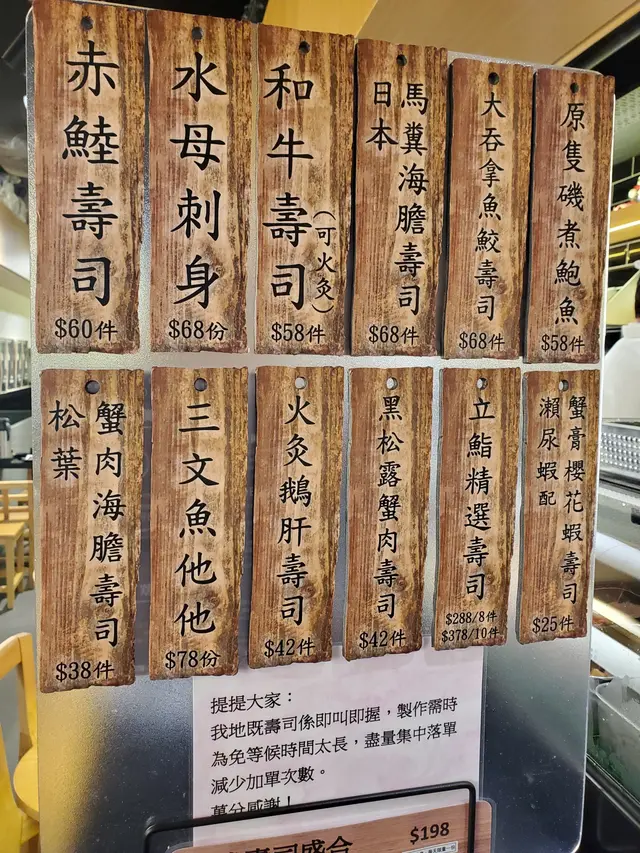 赤鯥壽司
$60件
水母刺身
$68份
和牛壽司
(可火灸)
$58件
日本
馬糞海膽壽司
$68件
大吞拿魚鮫壽司
$68件
原隻磯煮鮑魚
$58件
松葉
蟹肉海膽壽司
$38件
三文魚他他
$78份
火灸鵝肝壽司
$42件
黑松露蟹肉壽司
$42件
立鮨精選壽司
$288/8件
$378/10件
瀨尿蝦配
蟹膏櫻花蝦壽司
$25件
提提大家：
我地既壽司係即叫即握，製作需時
為免等候時間太長，盡量集中落單
減少加單次數。
萬分感謝！
壽司盛合
$198